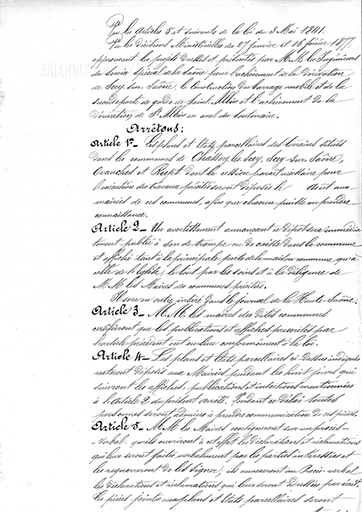 Vu les Articles 5 et suivants de la loi du 3 Mai 1841.
Vu les Décisions Ministérielles des 27 janvier et 16 février 1877
approuvant les projets dressés et présentés par M.M. les Ingénieurs
du Service Spécial de la Saône pour l'achèvement de la Dérivation
de Scey-sur-Saône, la Construction du barrage mobile et de la
seconde porte de garde de Saint-Albin et l'achèvement de la
dérivation de St Albin en aval du Souterrain.
Arrêtons:
Article 1er_ Les plans et États parcellaires des terrains situés
dans les communes de Chassey-les-Scey, Scey-sur-Saône,
Ovanches et Rupt dont la cession paraît nécessaire pour
l'exécution des travaux précités seront déposés le août aux
mairies de ces communes, afin que chacun puisse en prendre
connaissance.
Article 2_ Un avertissement annonçant ce dépôt sera immédia-
tement publié à son de trompe ou de caisse dans les communes
et affiché tant à la principale porte de la maison commune qu'à
celle de l'Église, le tout par les soins et à la diligence de
M.M. les Maires des communes précitées.
Il sera en outre inséré dans le journal de la Haute-Saône.
Article 3_ M.M. les maires des dites communes
certifieront que les publications et affiches prescrites par
l'article précédent ont eu lieu conformément à la loi.
Article 4_ Les plans et États parcellaires ci-dessus indiqués
resteront déposés aux Mairies pendant les huit jours qui
suivront les affiches, publications et insertions mentionnées
à l'article 2 du présent arrêté. Pendant ce délai toutes
personnes seront admises à prendre communication de ces pièces.
Article 5_ M.M. les Maires consigneront sur un procès-
-verbal, qu'ils ouvriront à cet effet les déclarations et réclamations
qui leur seront faites verbalement par les parties intéressées et
les requerront de les signer; ils annexeront au Procès-verbal
les déclarations et réclamations qui leur seront adressées par écrit.
Les pièces jointes aux plans et États parcellaires seront